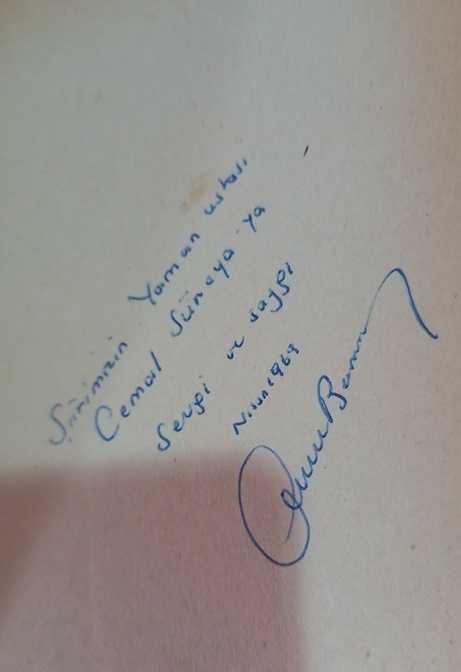 Şiirimizin Yaman ustası
Cemal Süreya-ya
Sevgi ve saygı
Nisan 1969